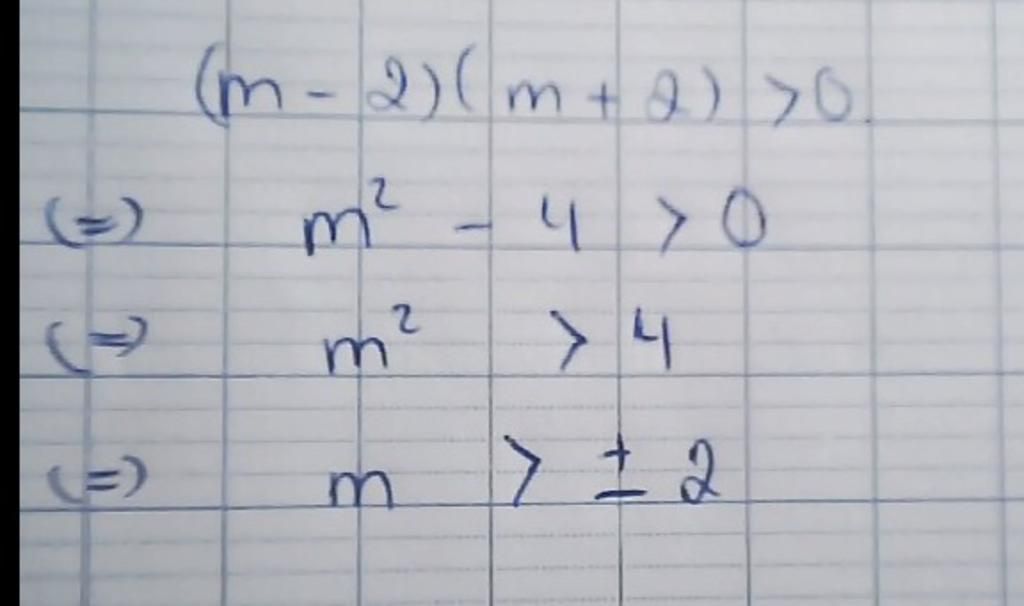 (m - 2)(m + 2) > 0
(=) m² - 4 > 0
(=) m² > 4
(=) m > ± 2